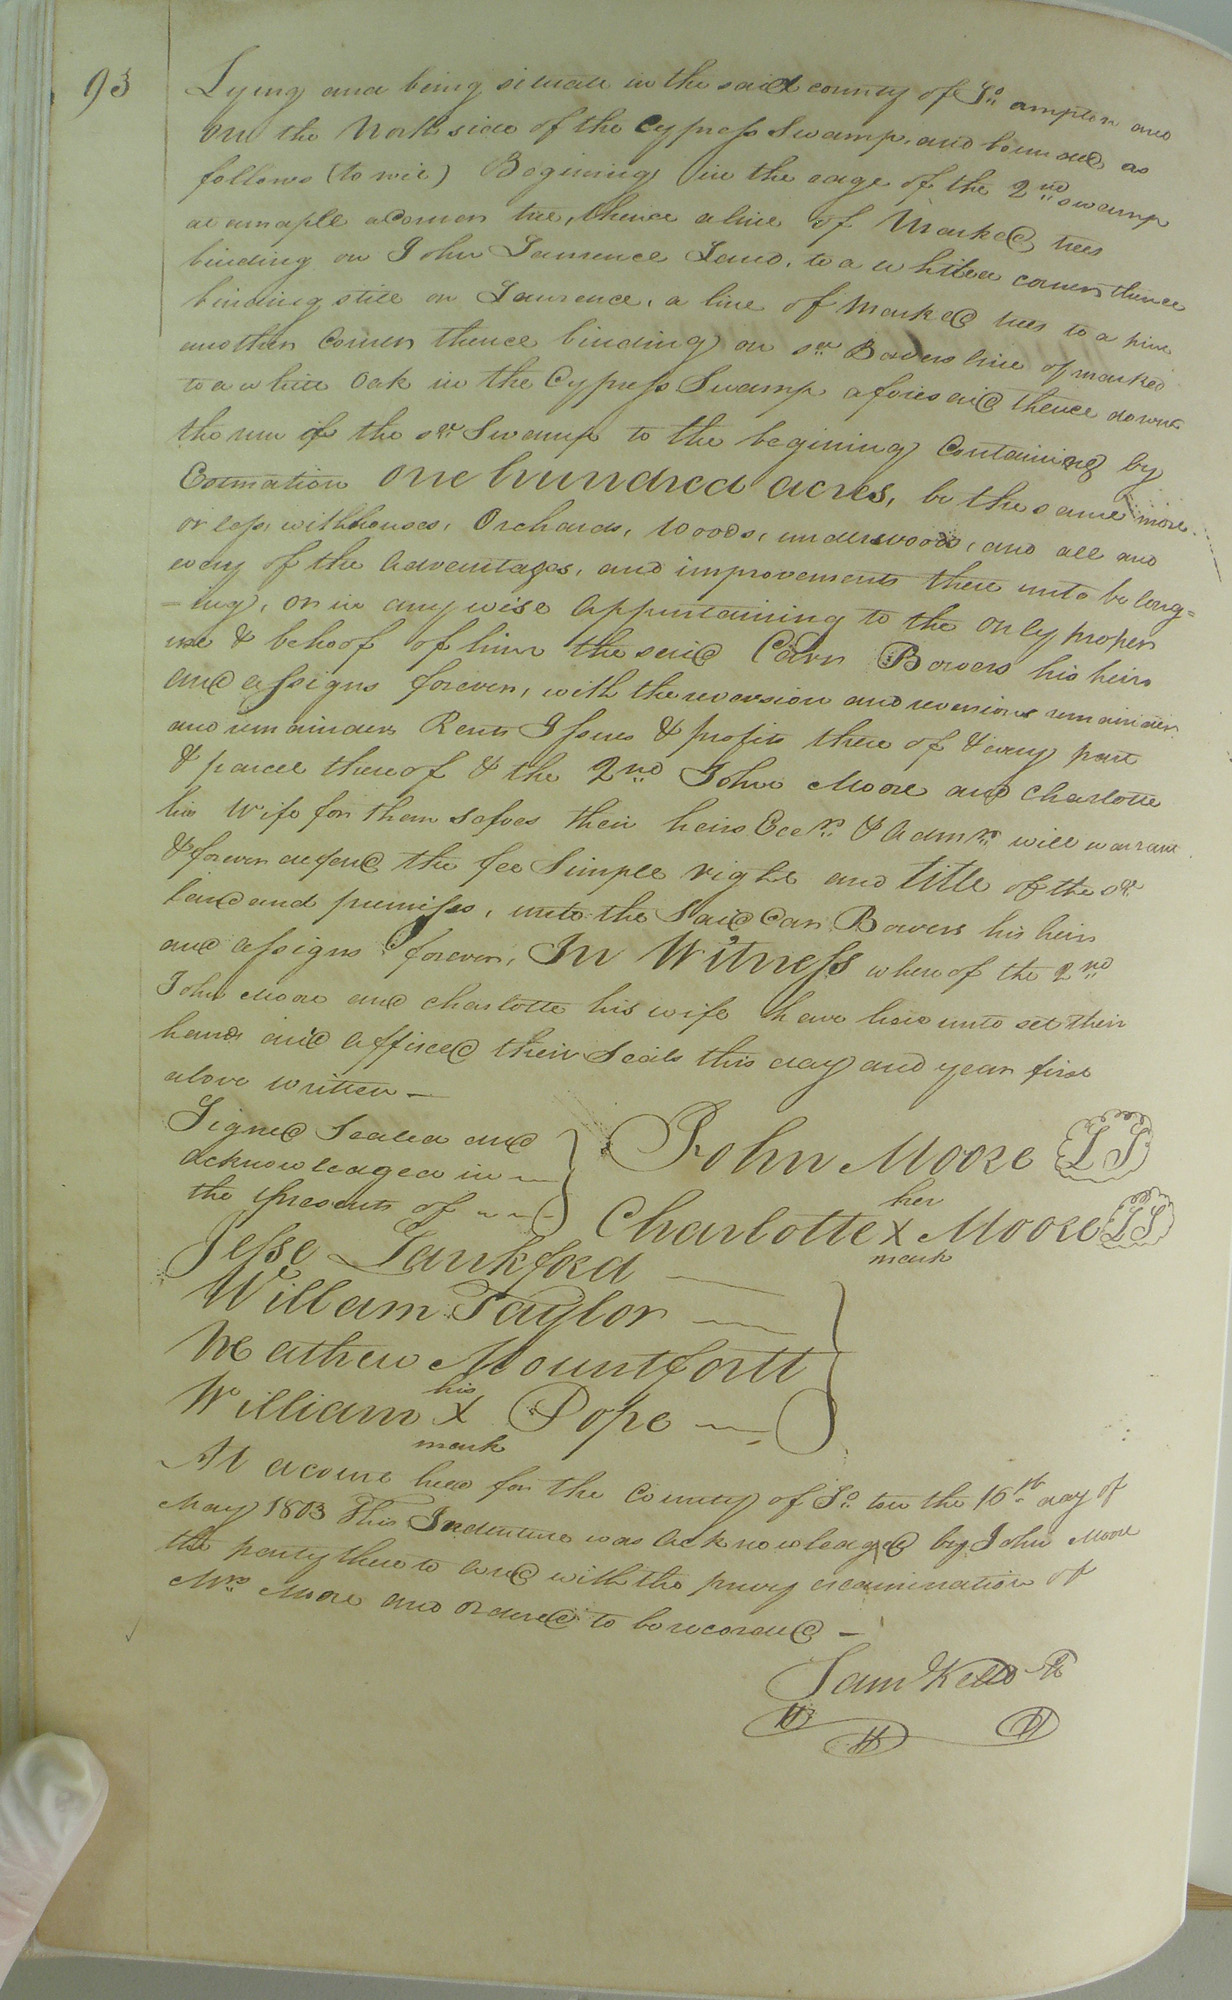 93
Lying and being situate in the said county of So. ampton and
on the North side of the Cypress Swamp, and bound as
follows (to wit) Begining in the edge of the 2nd swamp
at a maple a Corner tree, thence a line of Marked trees
binding on John Laurence Land, to a white corner thence
binding still on Laurence, a line of Marked trees to a pine
another Corner thence binding on sd Bowers line of marked
to a white Oak in the Cypress Swamp aforesaid thence down
the run of the sd Swamp to the begining Containing by
Estimation One hundred acres, be the same more
or less, with houses, Orchards, Woods, underwoods, and all and
every of the Advantages, and improvements there unto belong=
=ing, or in any wise Appurtaining to the only proper
use & behoof of him the said Carr Bowers his heirs
and assigns forever, with the reversion and reversions remainder
and remainders Rents Issues & profits there of & every part
& parcel thereof & the 2nd John Moore and Charlotte
his Wife for them selves their heirs Exers. & Admrs. will warrant
& forever defend the fee Simple right and title of the sd
land and premises, unto the Said Carr Bowers his heirs
and assigns forever, In Witness where of the 2nd
John Moore and Charlotte his wife have here unto set their
hands and affixed their Seals this day and year first
above written —
Signed Sealed and
acknowledged in —
the presents of ~ ~ -
John Moore LS
her
Charlotte X Moore LS
mark
Jesse Lankford
William Taylor
Mathew Mountfortt
his
William X Pope
mark
At a court held for the County of So. ton the 16th day of
May 1803 This Indenture was acknowledged by John Moore
the party thereto and with the privy examination of
Mrs. Moore and ordered to be recorded —
Sam Kello